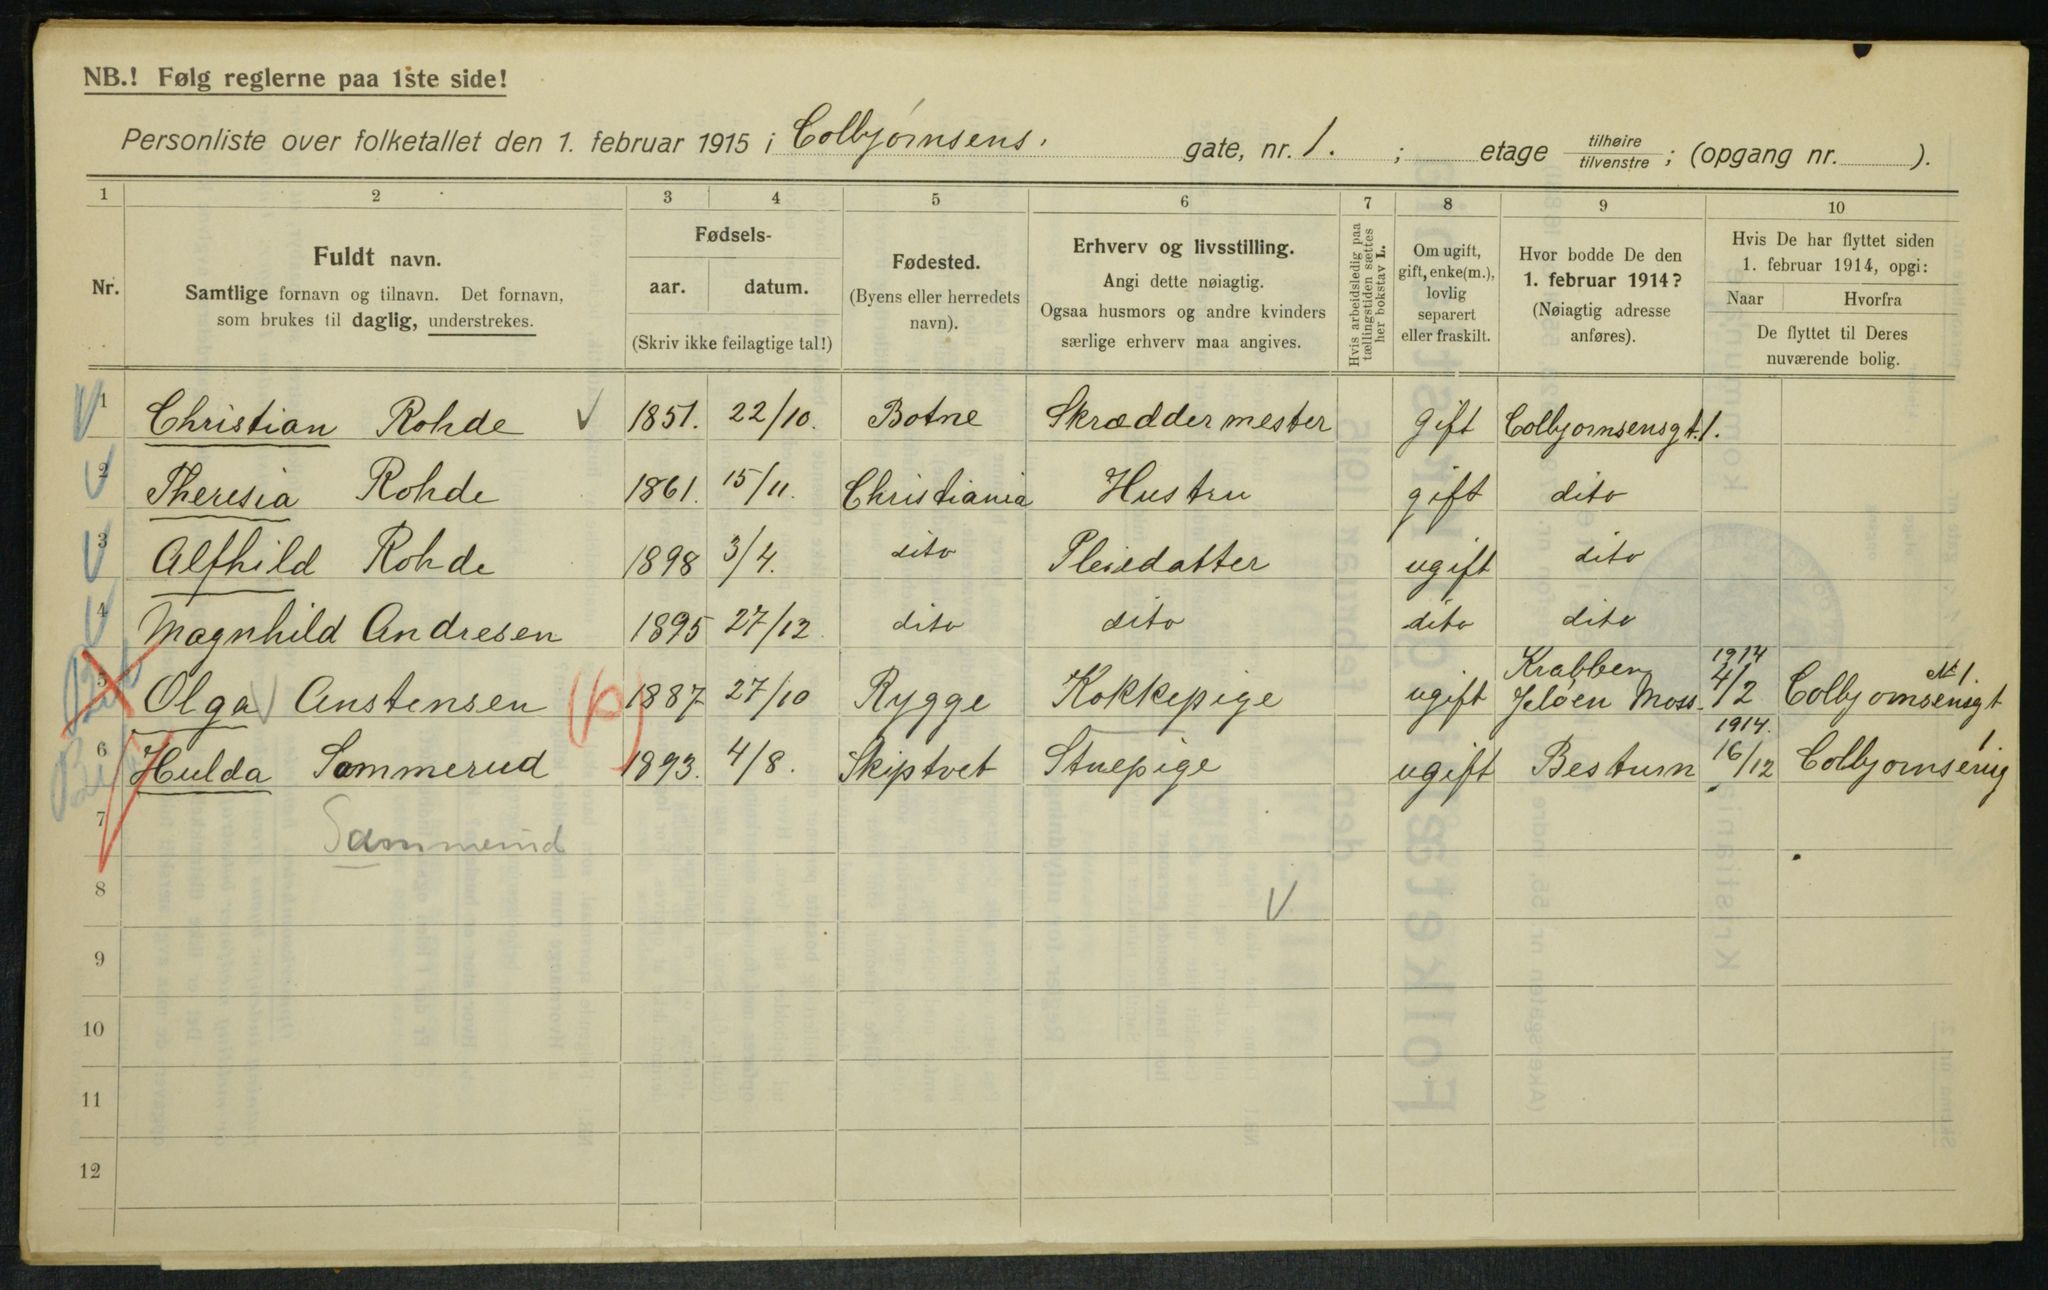 NB.! Følg reglerne paa 1ste side!
Personliste over folketallet den 1. februar 1915 i Colbjørnsens. gate, nr. 1. ; etage tilhøire tilvenstre ; (opgang nr. ).
1 2 3 4 5 6 7 8 9 10
Nr.
Fuldt navn.
Samtlige fornavn og tilnavn. Det fornavn,
som brukes til daglig, understrekes.
Fødsels-
aar. datum.
(Skriv ikke feilagtige tal!)
Fødested.
(Byens eller herredets
navn).
Erhverv og livsstilling.
Angi dette nøiagtig.
Ogsaa husmors og andre kvinders
særlige erhverv maa angives.
Hvis arbeidsledig paa
tællingstiden sættes
her bokstav L.
Om ugift,
gift, enke(m.),
lovlig
separert
eller fraskilt.
Hvor bodde De den
1. februar 1914?
(Nøiagtig adresse
anføres).
Hvis De har flyttet siden
1. februar 1914, opgi:
Naar Hvorfra
De flyttet til Deres
nuværende bolig.
1 Christian Rohde 1851. 22/10. Botne Skræddermester gift Colbjornsensgt. 1.
2 Theresia Rohde 1861. 15/11. Christiania Hustru gift dito
3 Alfhild Rohde 1898 3/4. dito Pleiedatter ugift dito
4 Magnhild Andresen 1895 27/12. dito dito dito dito
5 Olga Anstensen (b) 1887 27/10 Rygge Kokkepige ugift Krabben Jeløen Moss. 1914 4/2 Colbjornsensgt No 1.
6 Hulda Sommerud 1893. 4/8. Skiptvet Stuepige ugift Besturn 1914. 16/12 Colbjornsensg 1
7 Sammerud
8
9
10
11
12